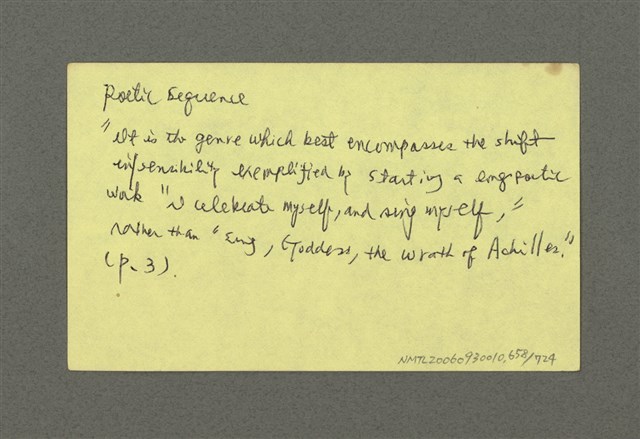 Poetic Sequence
"It is the genre which best encompasses the shift
in sensibility exemplified by starting a long poetic
work "I celebrate myself, and sing myself,"
rather than "Sing, Goddess, the wrath of Achilles."
(p. 3).
NMTL20060930010,658/724